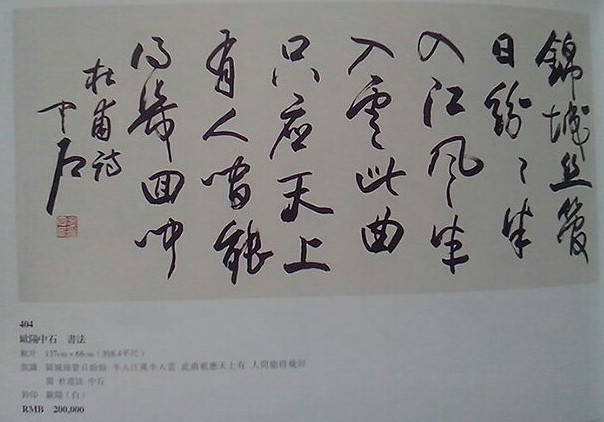 錦城丝管
日紛〻半
入江風半
入雲此曲
只應天上
有人間能
得幾回聞
杜甫詩
中石
404
歐陽中石 書法
軟片 137cm×68cm（約8.4平尺）
款識 錦城絲管日紛紛 半入江風半入雲 此曲祇應天上有 人間能得幾回
聞 杜甫詩 中石
鈐印 歐陽（白）
RMB 200,000